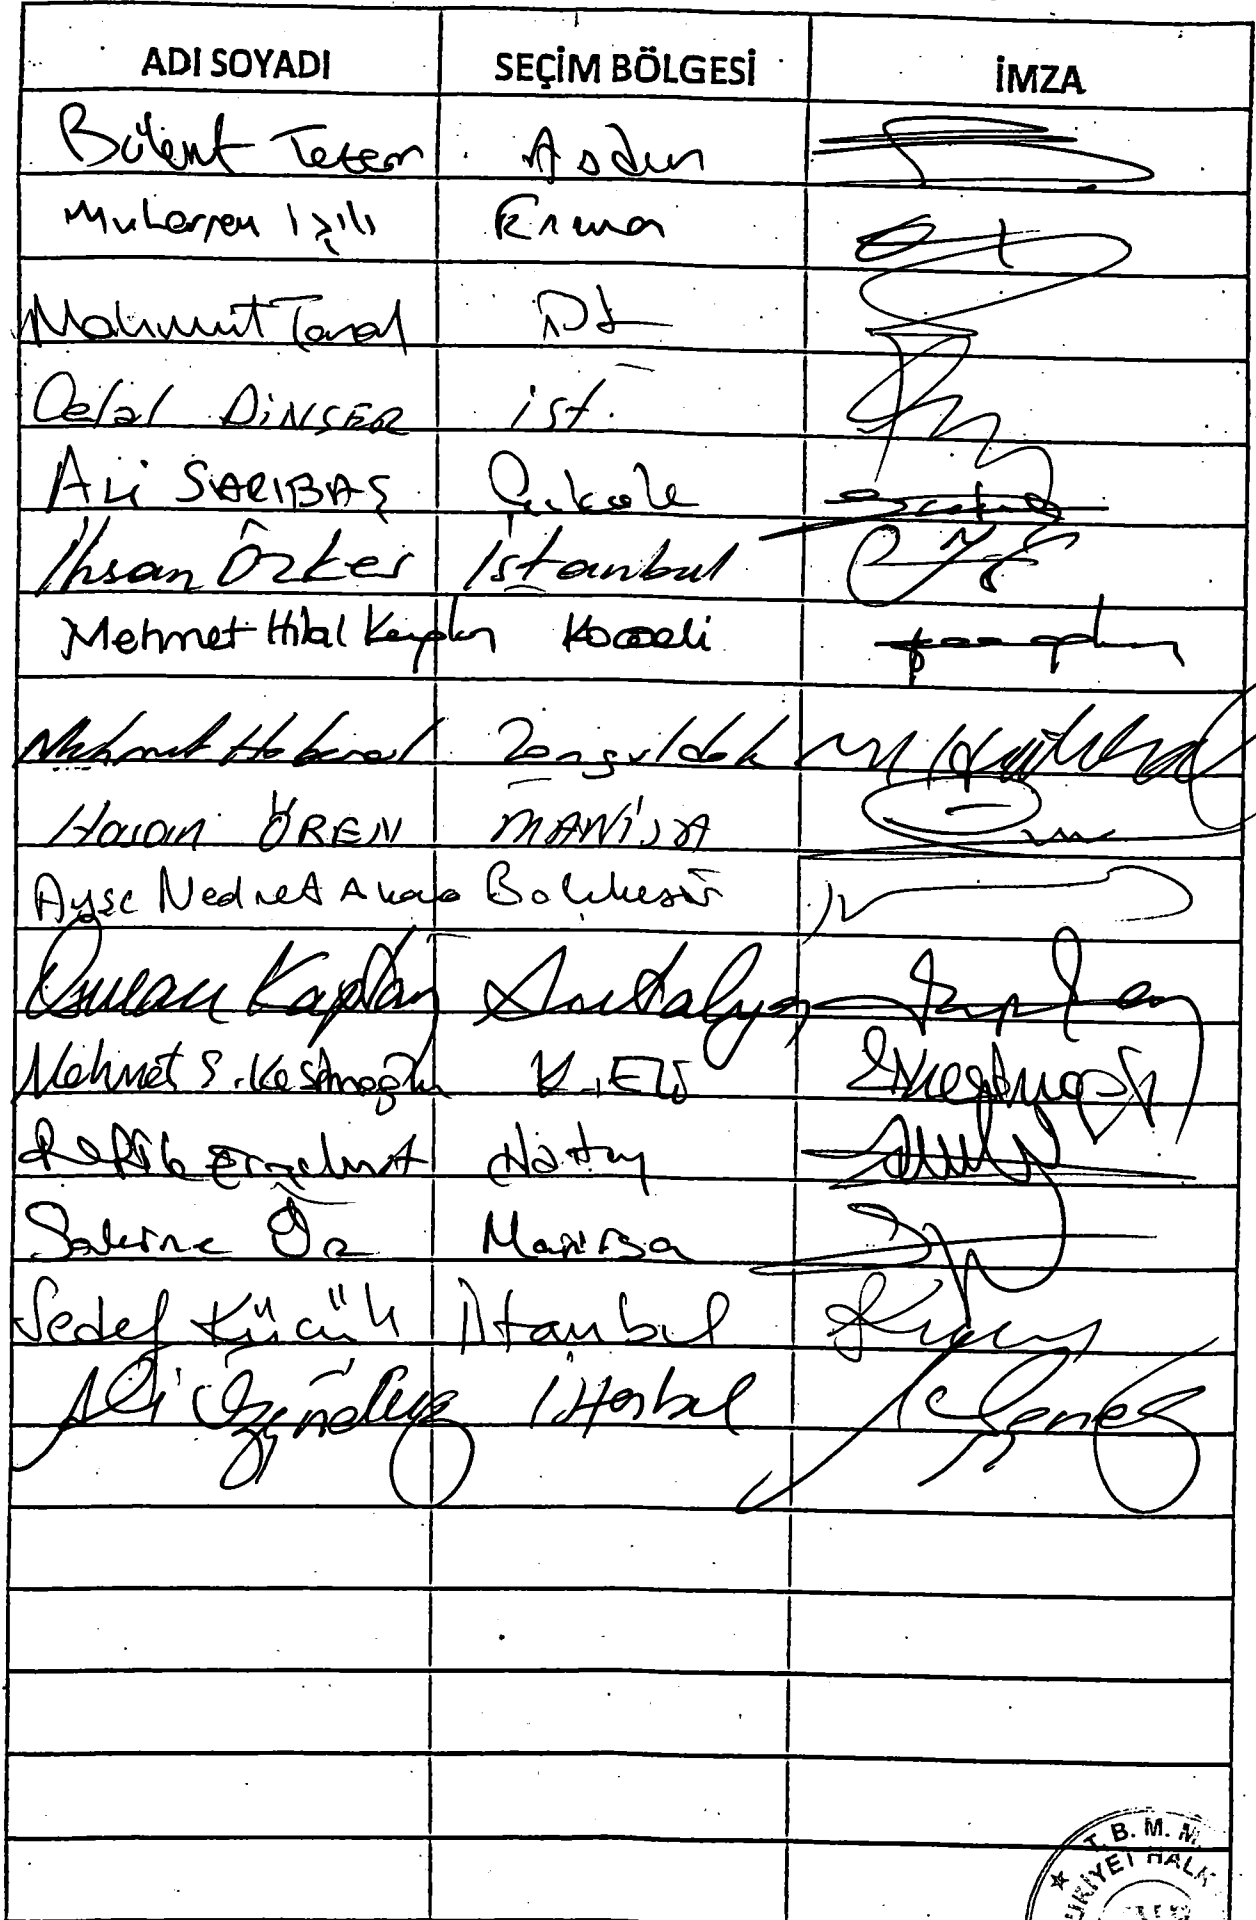 ADI SOYADI SEÇİM BÖLGESİ İMZA
Bülent Tezcan Aydın
Muharrem Işık Erzincan
Mahmut Tanal İst
Celal DİNÇER ist.
Ali SARIBAŞ Çanakkale
İhsan Özkes İstanbul
Mehmet Hilal Kaplan Kocaeli
Mehmet Haberal Zonguldak
Hasan ÖREN MANİSA
Ayşe Nedret Akova Balıkesir
Osman Kaplan Antalya
Mehmet S. Kesimoğlu K.ELİ
Refik Eryılmaz Hatay
Sakine Öz Manisa
Sedef Küçük İstanbul
Ali Özgündüz İstanbul
T. B. M. M.
HALK